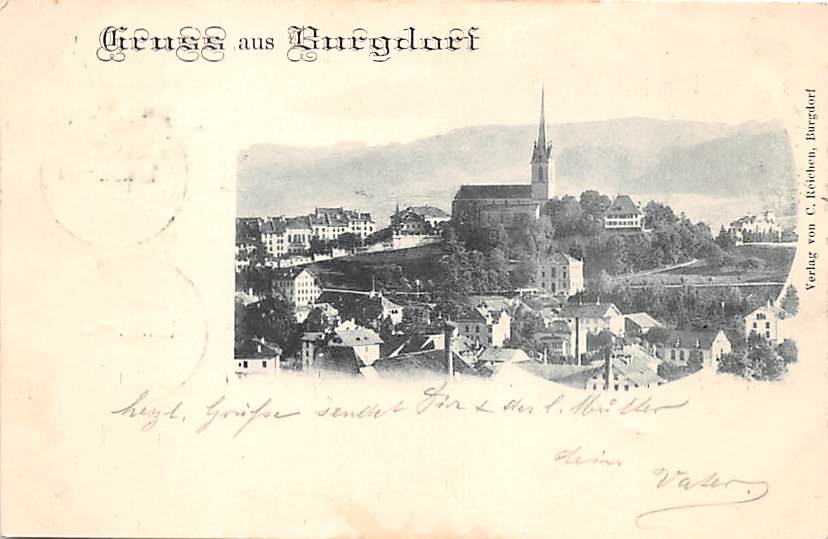 Gruss aus Burgdorf
Verlag von C. Reichen, Burgdorf
herzl. Grüsse sendet Dir & der l. Mutter
dein
Vater.